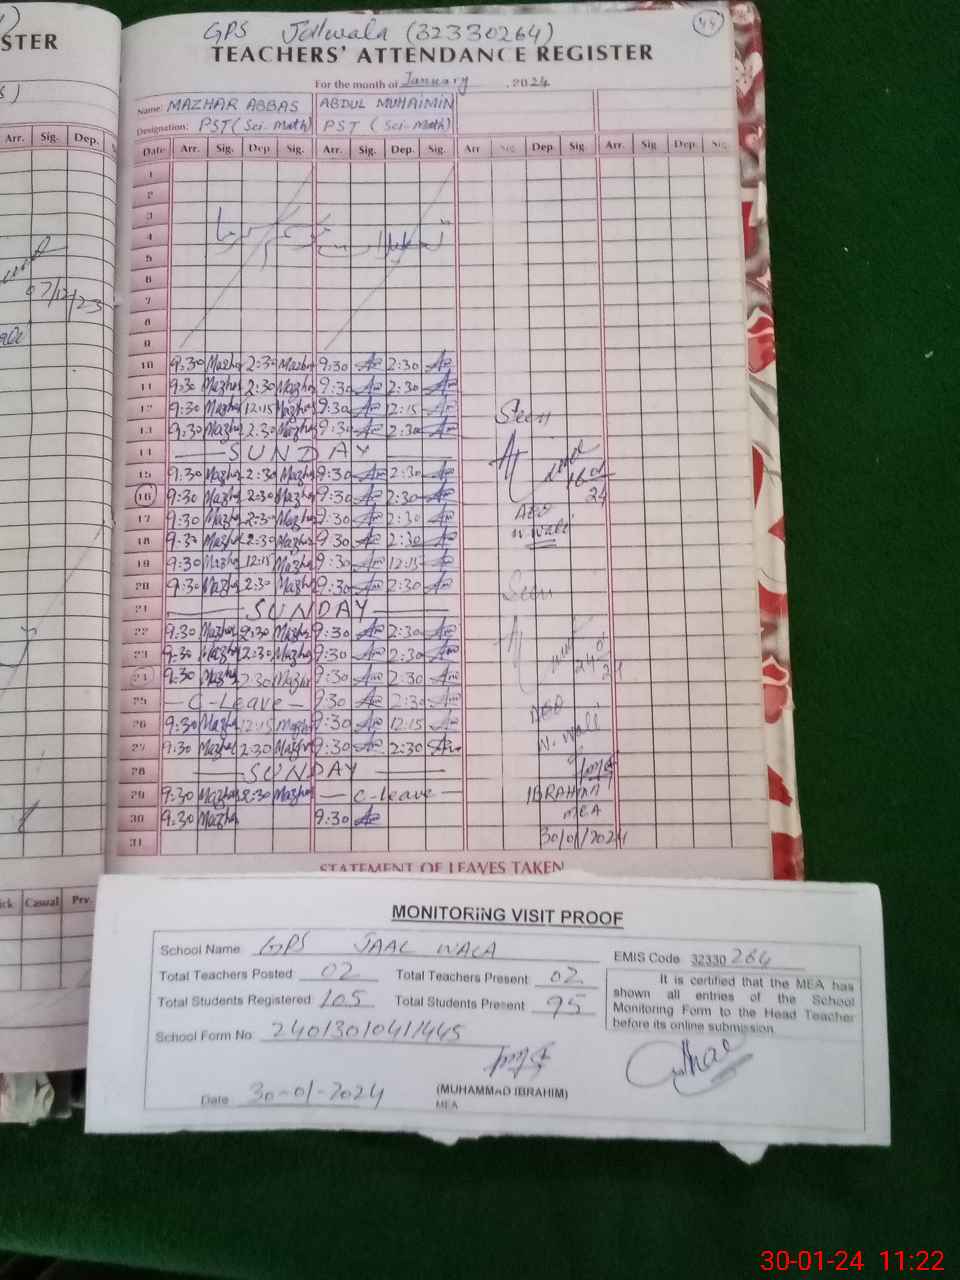 GPS Jallwala (32330264)
44
STER
TEACHERS' ATTENDANCE REGISTER
For the month of January, 2024
Name: MAZHAR ABBAS ABDUL MUHAIMIN
Designation: PST (Sci-Math) PST (Sci-Math)
Arr. Sig. Dep.
Date Arr. Sig. Dep. Sig. Arr. Sig. Dep. Sig. Arr. Sig. Dep. Sig. Arr. Sig. Dep. Sig.
1
2
3
4
5
6
07/12/23
7
8
9
10 9:30 Mazhar 2:30 Mazhar 9:30 2:30
11 9:30 Mazhar 2:30 Mazhar 9:30 2:30
12 9:30 Mazhar 12:15 Mazhar 9:30 12:15 Seen
13 9:30 Mazhar 2:30 Mazhar 9:30 2:30
14 SUNDAY
15 9:30 Mazhar 2:30 Mazhar 9:30 2:30 16 01
16 9:30 Mazhar 2:30 Mazhar 9:30 2:30 24
17 9:30 Mazhar 2:30 Mazhar 9:30 2:30 AEO
18 9:30 Mazhar 2:30 Mazhar 9:30 2:30 W. Wali
19 9:30 Mazhar 12:15 Mazhar 9:30 12:15
20 9:30 Mazhar 2:30 Mazhar 9:30 2:30 Seen
21 SUNDAY
22 9:30 Mazhar 2:30 Mazhar 9:30 2:30
23 9:30 Mazhar 2:30 Mazhar 9:30 2:30 24 01
24 9:30 Mazhar 2:30 Mazhar 9:30 2:30 24
25 C-Leave 9:30 2:30 AEO
26 9:30 Mazhar 12:15 Mazhar 9:30 12:15 W. Wali
27 9:30 Mazhar 2:30 Mazhar 9:30 2:30
28 SUNDAY
29 9:30 Mazhar 2:30 Mazhar C-leave IBRAHIM
30 9:30 Mazhar 9:30 MEA
31 30/01/2024
STATEMENT OF LEAVES TAKEN
ick Casual Prv.
MONITORING VISIT PROOF
School Name GPS JAAL WALA EMIS Code 32330 264
Total Teachers Posted: 02 Total Teachers Present: 02
Total Students Registered: 105 Total Students Present: 95
It is certified that the MEA has shown all entries of the School Monitoring Form to the Head Teacher before its online submission.
School Form No: 24013010411445
(MUHAMMAD IBRAHIM)
MEA
Date 30-01-2024
30-01-24 11:22